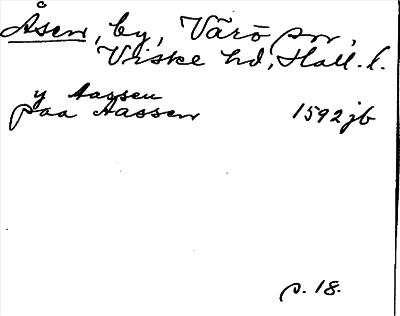 Åsen, by, Värö sn,
Viske hd, Hall. l.
y Aassen
paa Aassen 1592 jb
p. 18.